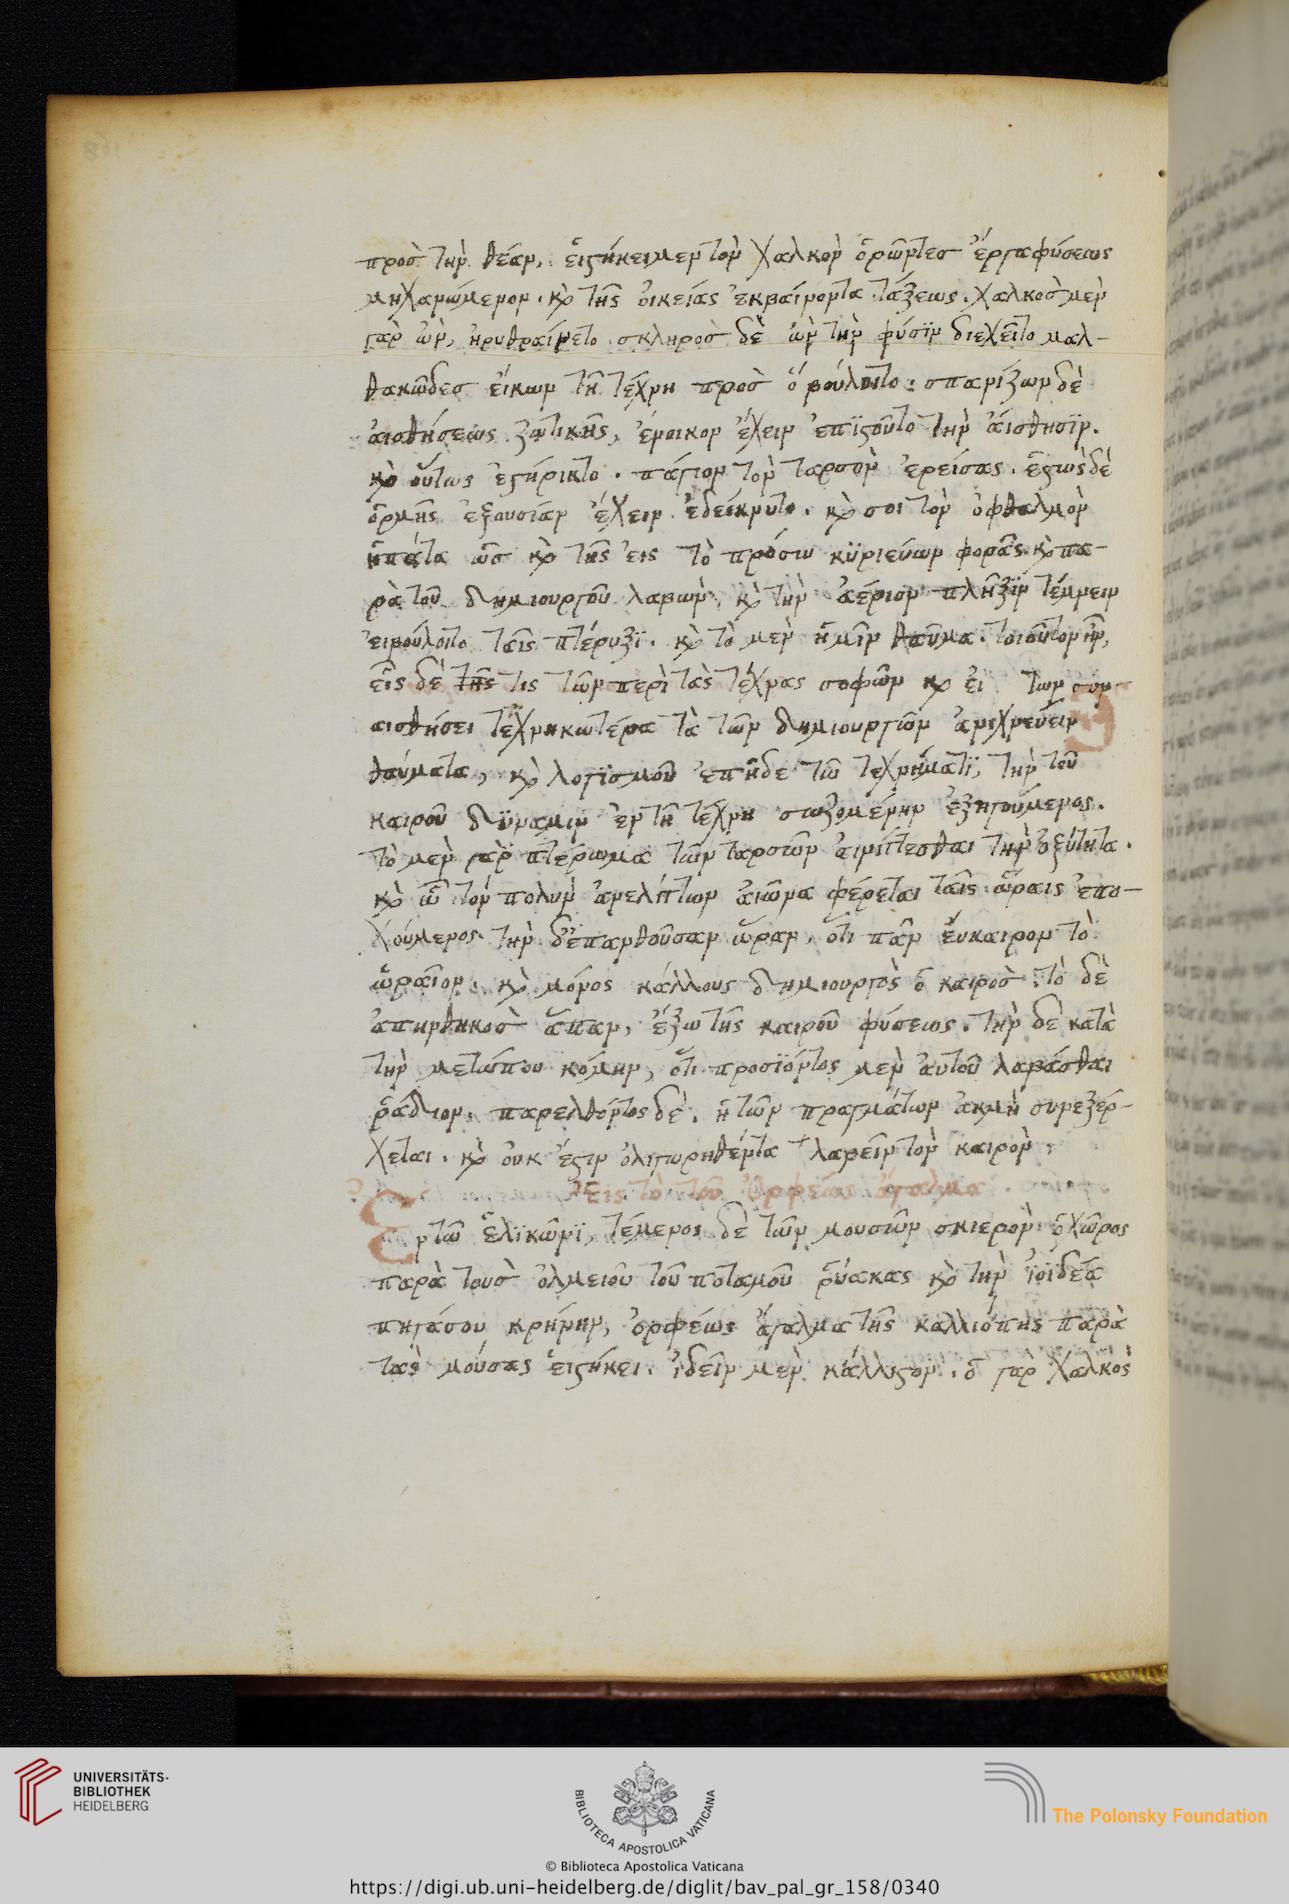 προσ τὴν θέαν. εἱστήκειμεν τὸν χαλκὸν ὁρῶντεσ ἔργα φύσεως
μηχανώμενον. κὶ τῆς οἰκείας ἐκβαίνοντα τάξεως. χαλκοσ μὲν
γὰρ ὢν, ἠρυθραίνετο. σκληροσ δὲ ὢν τὴν φύσϊν διεχεῖτο μαλ-
θακῶδεσ εἴκων τῆ τέχνη προσ ὃ βούλοιτο: σπανίζων δὲ
αἰσθήσεως ζωτικῆς, ἔνοικον ἔχειν ἐπϊστοῦτο τὴν αἴσθησϊν.
κὶ οὕτως ἐστήρικτο. πάγιον τὸν ταρσὸν ἐρείσας. ἑστὼς δὲ
ὁρμῆς ἐξουσίαν ἔχειν ἐδείκνυτο. κὶ σοι τὸν ὀφθαλμὸν
ἠπάτα ὡσ κὶ τῆς εἰς τὸ πρόσω κϋριεύων φορᾶς. κὶ πα-
ρὰ τοῦ δημιουργοῦ λαβὼν, κὶ τὴν ἀέριον πλῆξϊν τέμνειν
εἰ βούλοιτο ταῖς πτέρυξϊ. κὶ τὸ μὲν ἡμῖν θαῦμα. τοιοῦτον ἦν,
εἷς δέ τῆς τις τῶν περὶ τὰς τέχνας σοφῶν κὶ εἰ των σὺν
αισθήσει τεχνηκωτέρα τὰ τῶν δημιουργῶν ἀνιχνεύειν
θαύματα, κὶ λογϊσμοῦ ἐπῆδε τῶ τεχνήματϊ, τὴν τοῦ
καιροῦ δϋναμιν ἐν τῆ τέχνη σωζομένην ἐξηγούμενος.
τὸ μὲν γὰρ πτέρωμα τῶν ταρσῶν αἰνίττεσθαι τὴν ὀξύτητα.
κὶ ὡ τόν πολυν ἀνελίττων αἰῶνα φέρεται ταῖς ὥραις ἐπο-
χούμενος. τὴν δ' ἐπανθοῦσαν ὥραν, ὅτι πᾶν εὔκαιρον τὸ
ὡραῖον. κὶ μόνος κάλλους δημιουργὸς ὁ καιροσ. τὸ δὲ
ἀπηνθηκοσ ἅπαν, ἔξω τῆς καιροῦ φύσεως. τὴν δὲ κατὰ
τὴν μετώπου κόμην, ὅτι προσϊόντος μὲν αὐτοῦ λαβάσθαι
ῥάδιον. παρελθόντος δὲ. ἡ τῶν πραγμάτων ἀκμὴ συνεξέρ-
χεται. κὶ ουκ ἔστιν ὀλιγωρηθέντα λαβεῖν τὸν καιρὸν.
Εἰς τὸ τοῦ Ὀρφέως ἄγαλμα
Εν τῶ ἑλϊκῶνϊ, τέμενος δὲ τῶν μουσῶν σκιερὸν ὁ χῶρος
παρὰ τουσ ὀλμειοῦ τοῦ ποταμοῦ ῥύακας κὶ τὴν ἰοϊδέα
πηγάσου κρήνην, ὀρφέως ἄγαλμα τῆς καλλιόπης παρὰ
τασ μούσας εἱστήκει. ἰδεῖν μὲν κάλλιστον. ὁ γὰρ χαλκὸς
UNIVERSITÄTS-
BIBLIOTHEK
HEIDELBERG
BIBLIOTECA APOSTOLICA VATICANA
The Polonsky Foundation
© Biblioteca Apostolica Vaticana
https://digi.ub.uni-heidelberg.de/diglit/bav_pal_gr_158/0340